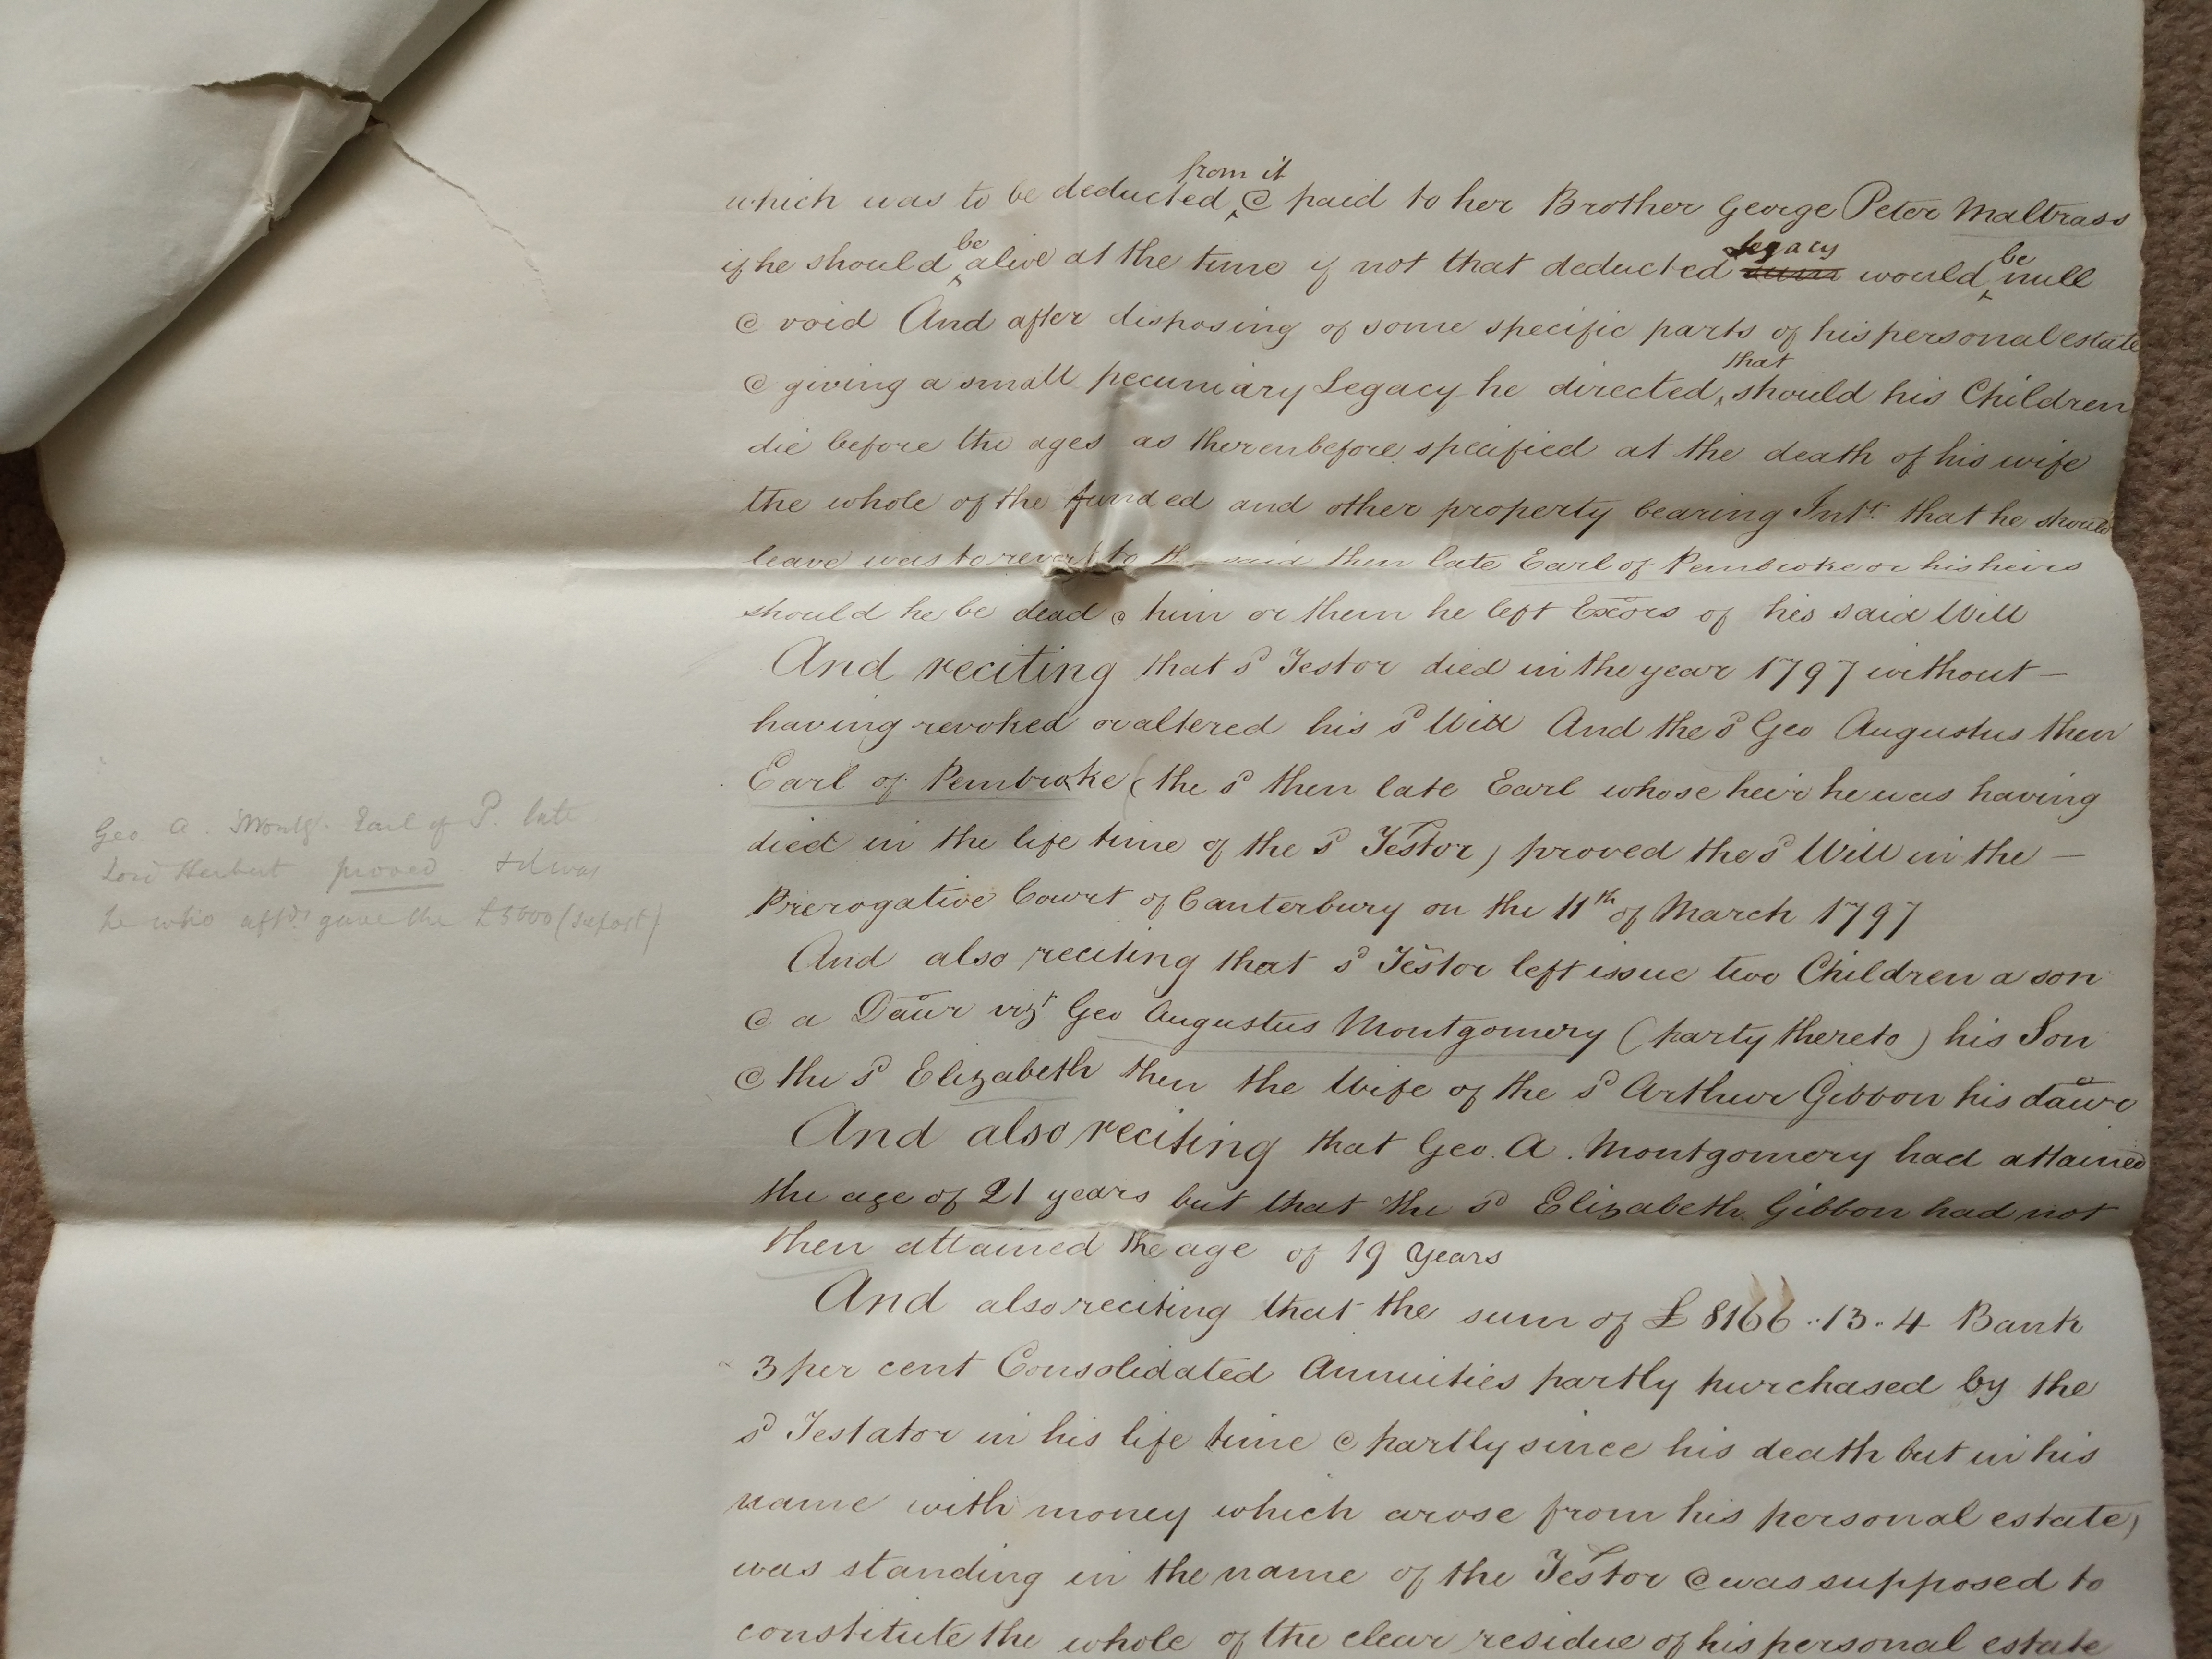 which was to be deducted from it & paid to her Brother George Peter Maltrass
if he should be alive at the time if not that deducted legacy sum would be null
& void And after disposing of some specific parts of his personal estate
& giving a small pecuniary Legacy he directed that should his Children
die before the ages as therenbefore specified at the death of his wife
the whole of the funded and other property bearing Intt. that he should
leave was to revert to the said then late Earl of Pembroke or his heirs
should he be dead & him or them he left Exors of his said Will
And reciting that sd Testor died in the year 1797 without —
having revoked or altered his sd Will And the sd Geo Augustus then
Earl of Pembroke (the sd then late Earl whose heir he was having
died in the life time of the sd Testor) proved the sd Will in the —
Prerogative Court of Canterbury on the 11th of March 1797
Geo A. Montg. Earl of P. late
Lord Herbert proved & it was
he who aftds gave the £5000 (see post)
And also reciting that sd Testor left issue two Children a son
& a Daur vizt Geo Augustus Montgomery (party thereto) his Son
& the sd Elizabeth then the Wife of the sd Arthur Gibbon his daur
And also reciting that Geo. A. Montgomery had attained
the age of 21 years but that the sd Elizabeth Gibbon had not
then attained the age of 19 years
And also reciting that the sum of £8166..13..4 Bank
3 per cent Consolidated Annuities partly purchased by the
sd Testator in his life time & partly since his death but in his
name with money which arose from his personal estate)
was standing in the name of the Testor & was supposed to
constitute the whole of the clear residue of his personal estate